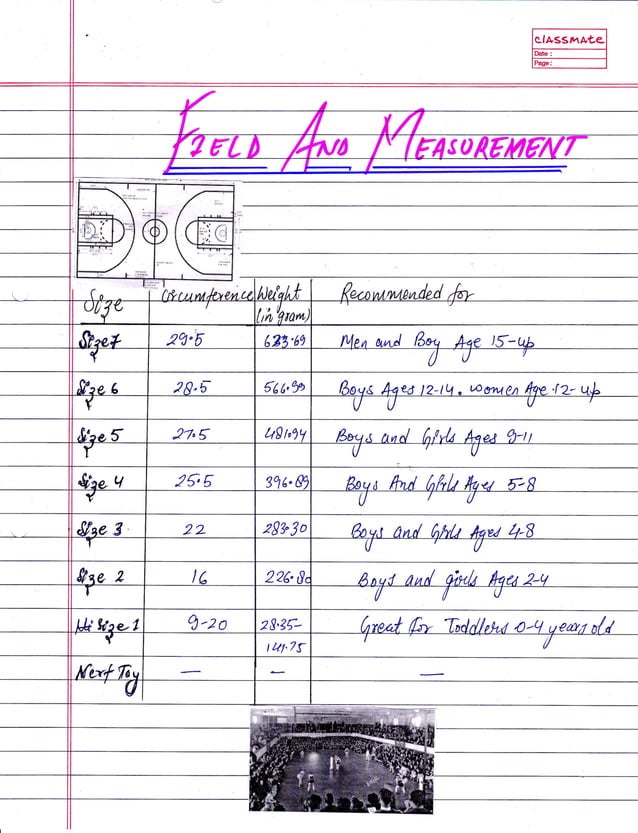 classmate
Date :
Page :
FIELD AND MEASUREMENT
Size Circumference Weight (in gram) Recommended for
Size 7 29.5 623.69 Men and Boy Age 15-up
Size 6 28.5 566.99 Boys Ages 12-14. women Age 12-up
Size 5 27.5 481.94 Boys and Girls Ages 9-11
Size 4 25.5 396.89 Boys And Girls Ages 5-8
Size 3 22 283.30 Boys and Girls Ages 4-8
Size 2 16 226.80 Boys and girls Ages 2-4
Size 1 9-20 28.35-141.75 Great for Toddlers 0-4 years old
Nerf Toy — — —